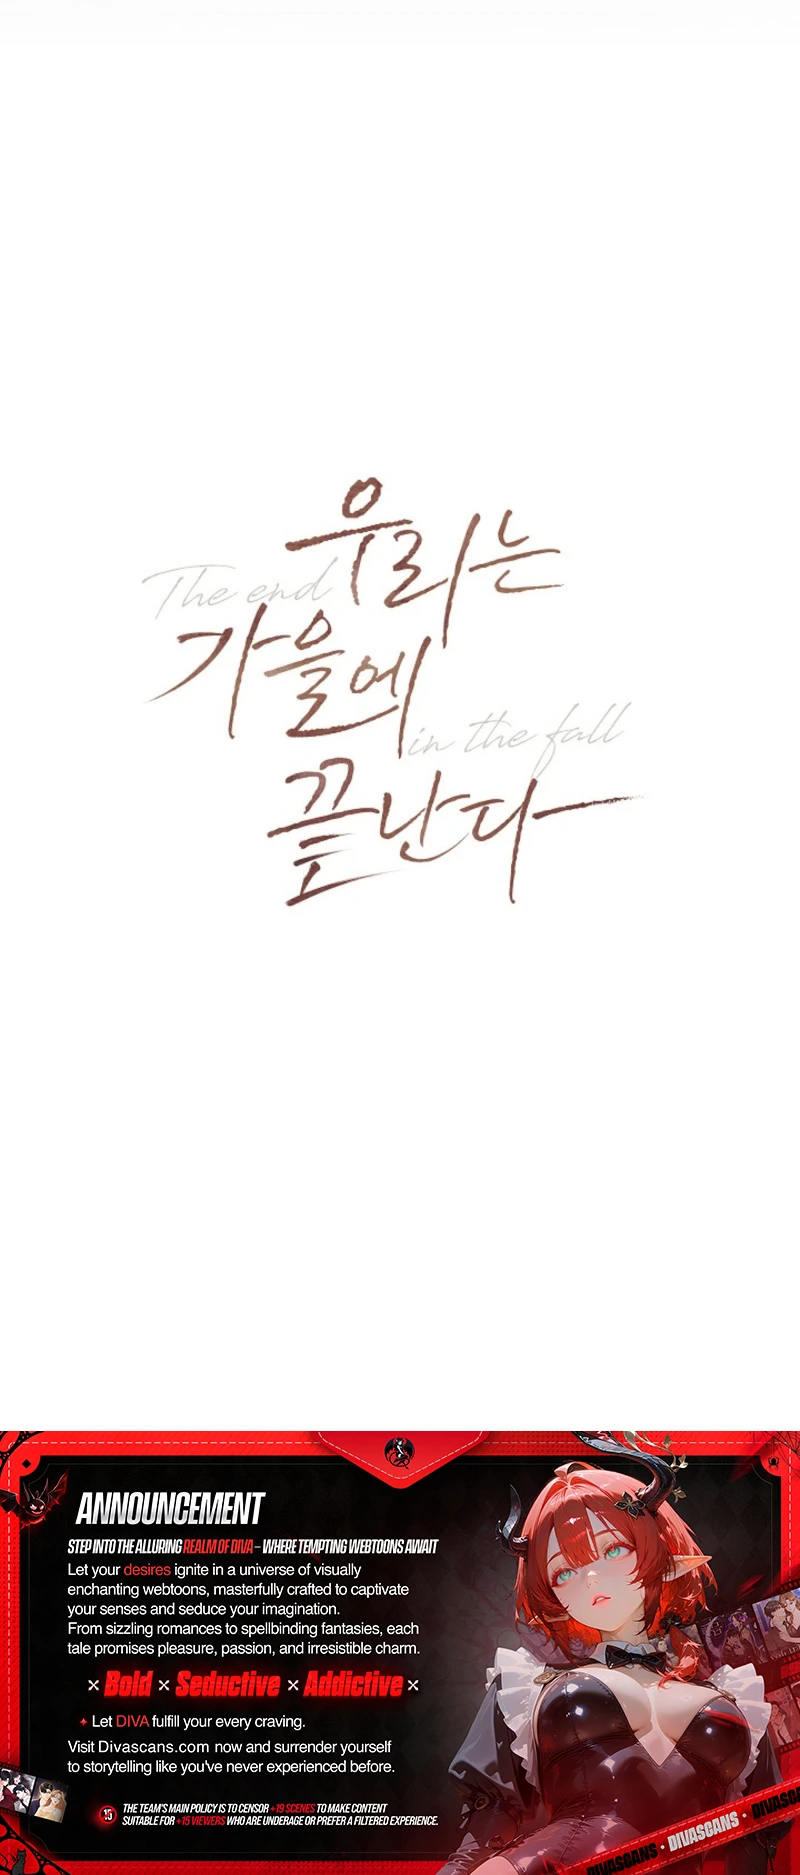 우리는
The end
가을에
in the fall
끝난다
ANNOUNCEMENT
STEP INTO THE ALLURING REALM OF DIVA – WHERE TEMPTING WEBTOONS AWAIT
Let your desires ignite in a universe of visually
enchanting webtoons, masterfully crafted to captivate
your senses and seduce your imagination.
From sizzling romances to spellbinding fantasies, each
tale promises pleasure, passion, and irresistible charm.
× Bold × Seductive × Addictive ×
Let DIVA fulfill your every craving.
Visit Divascans.com now and surrender yourself
to storytelling like you've never experienced before.
15
THE TEAM'S MAIN POLICY IS TO CENSOR +19 SCENES TO MAKE CONTENT
SUITABLE FOR +15 VIEWERS WHO ARE UNDERAGE OR PREFER A FILTERED EXPERIENCE.
DIVASCANS • DIVASCANS • DIVASCANS